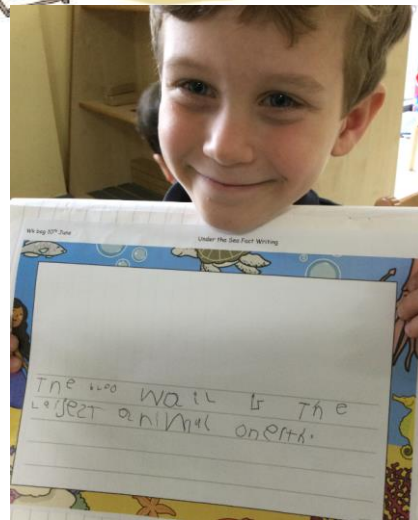 Wk beg 10th June
Under the Sea Fact Writing
The bloo wail is the
largest animal onerth.